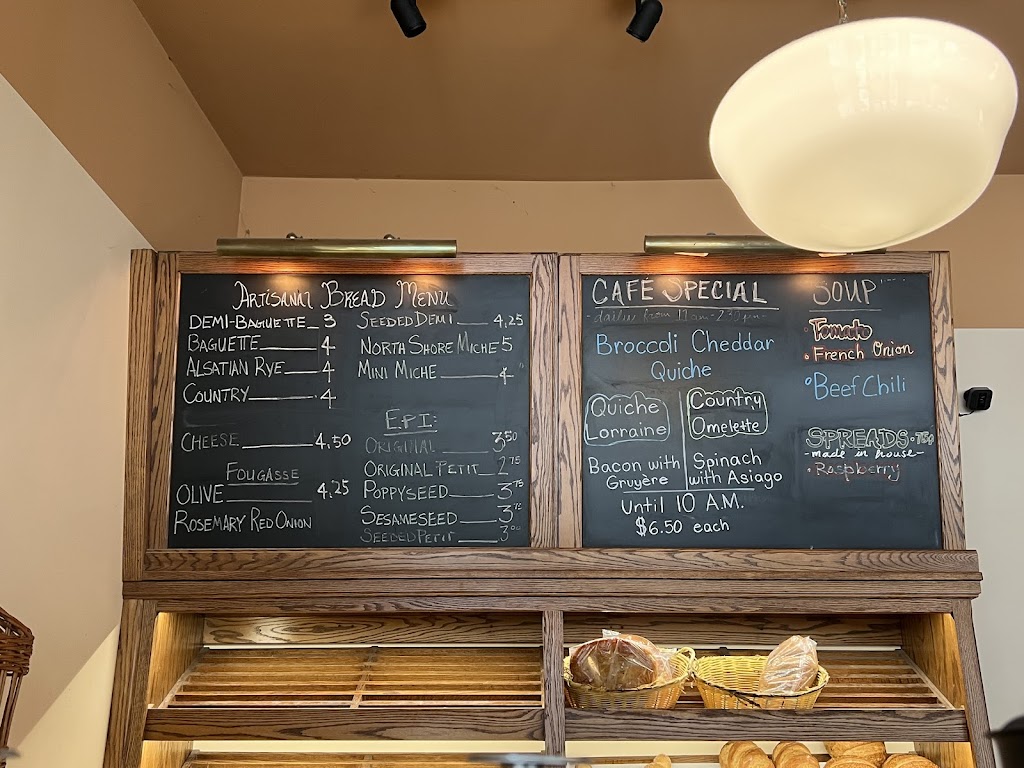 Artisanal Bread Menu
Demi-Baguette 3
Baguette 4
Alsatian Rye 4
Country 4
Cheese 4.50
Fougasse
Olive 4.25
Rosemary Red Onion
Seeded Demi 4.25
North Shore Miche 5
Mini Miche 4
E.P.I:
Original 3.50
Original Petit 2.75
Poppyseed 3.75
Sesameseed 3.75
Seeded Petit 3.00
CAFÉ SPECIAL
- daily from 11am-2:30pm -
Broccoli Cheddar
Quiche
Quiche
Lorraine
Bacon with
Gruyère
Country
Omelette
Spinach
with Asiago
Until 10 A.M.
$6.50 each
SOUP
• Tomato
• French Onion
• Beef Chili
SPREADS • 7.50
- made in house -
• Raspberry